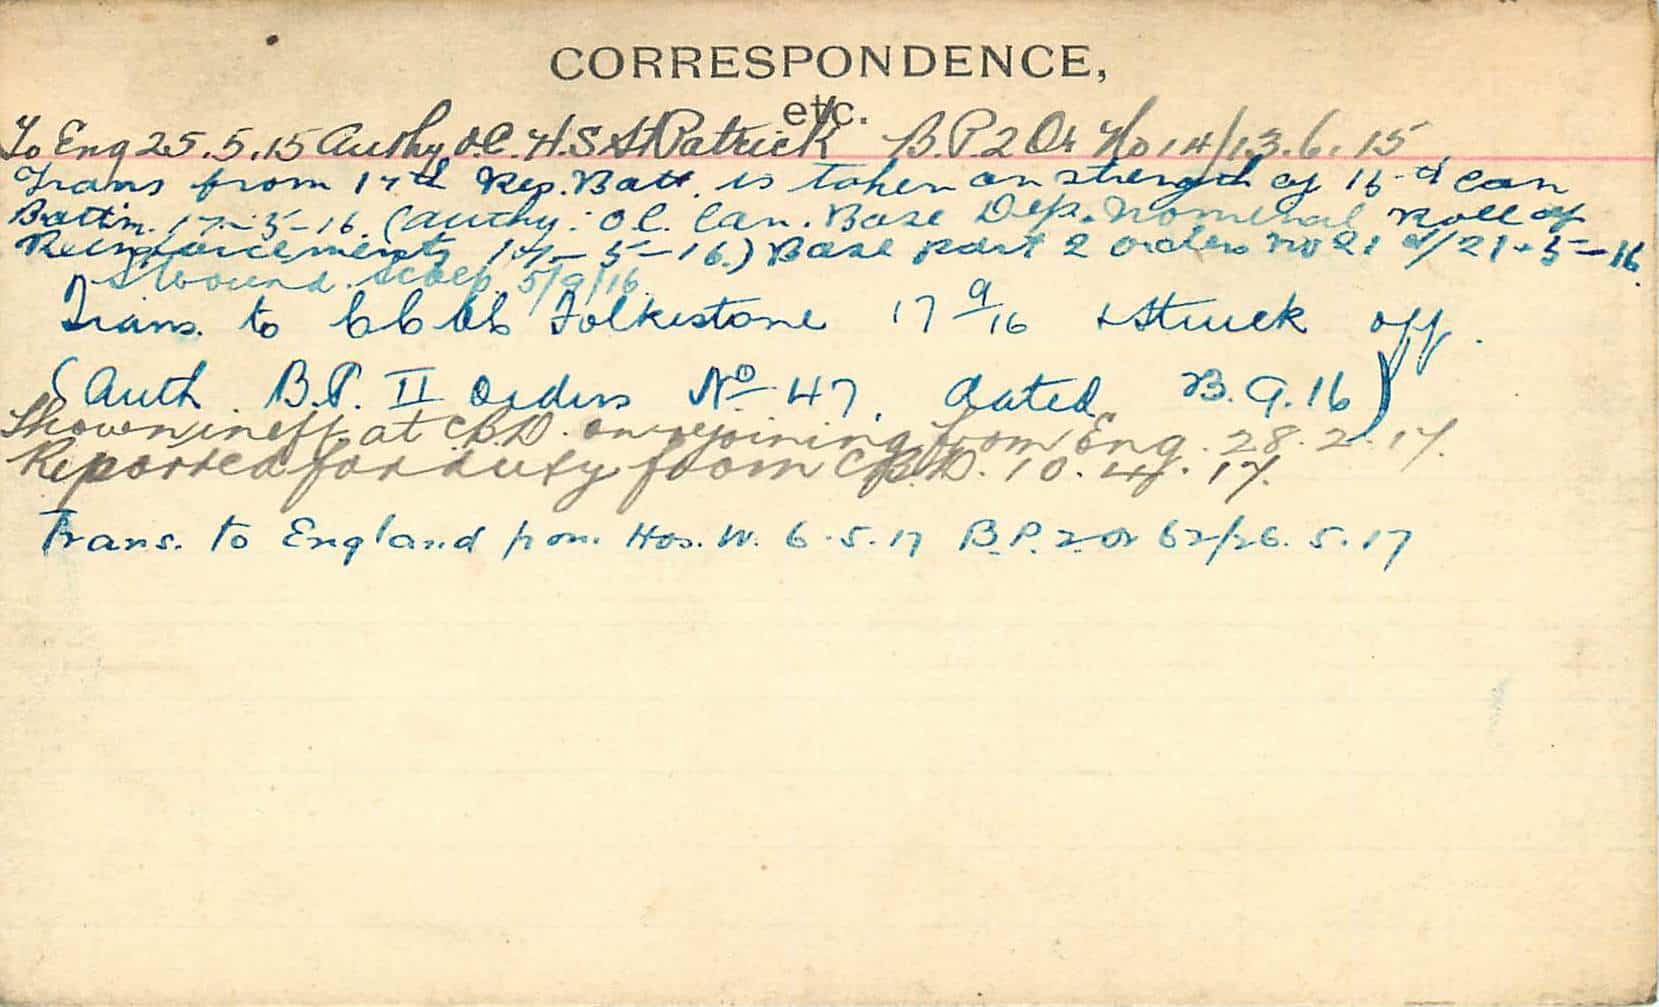 CORRESPONDENCE,
etc.
To Eng 25.5.15 Authy O.C. H.S. St Patrick B.P.2 Or No 14/13.6.15
Trans from 17th Res. Batt. is taken on strength of 16th Can
Battn. 17-5-16. (Authy: O.C. Can. Base Dep. Nominal Roll of
Reinforcements 17-5-16.) Base part 2 orders No 21 d/21-5-16.
S wound. scalp 5/9/16.
Trans. to Folkestone 17 9/16 & Struck off.
(Auth. B.P. II Orders No 47. dated 9.16)
Shown ineff. at C.B.D. on rejoining from Eng. 28.2.17.
Reported for duty from C.B.D. 10.4.17.
Trans. to England Hos. W. 6.5.17 B.P.2 Or 62/26.5.17